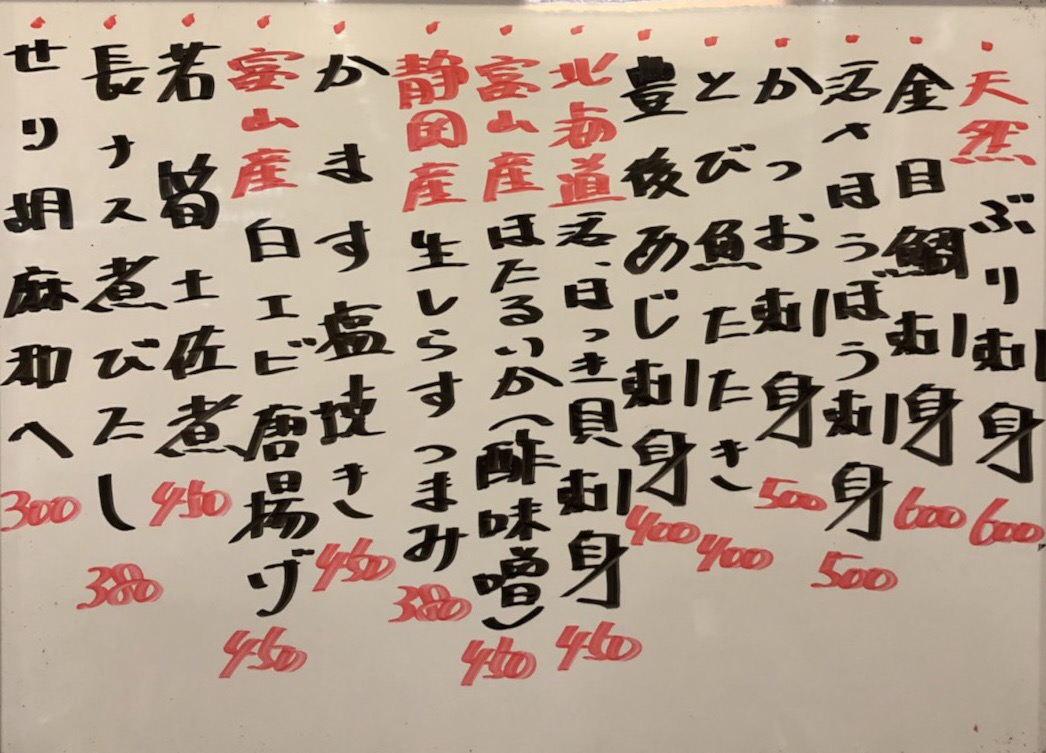 天然ぶり刺身 600
金目鯛刺身 600
活〆ほうぼう刺身 500
かつお刺身 500
とび魚たたき 400
豊後あじ刺身 400
北海道活ほっき貝刺身 450
富山産ほたるいか(酢味噌) 450
静岡産生しらすつまみ 380
かます塩焼き 450
富山産白エビ唐揚げ 450
若筍土佐煮 450
長ナス煮びたし 380
せり胡麻和へ 300